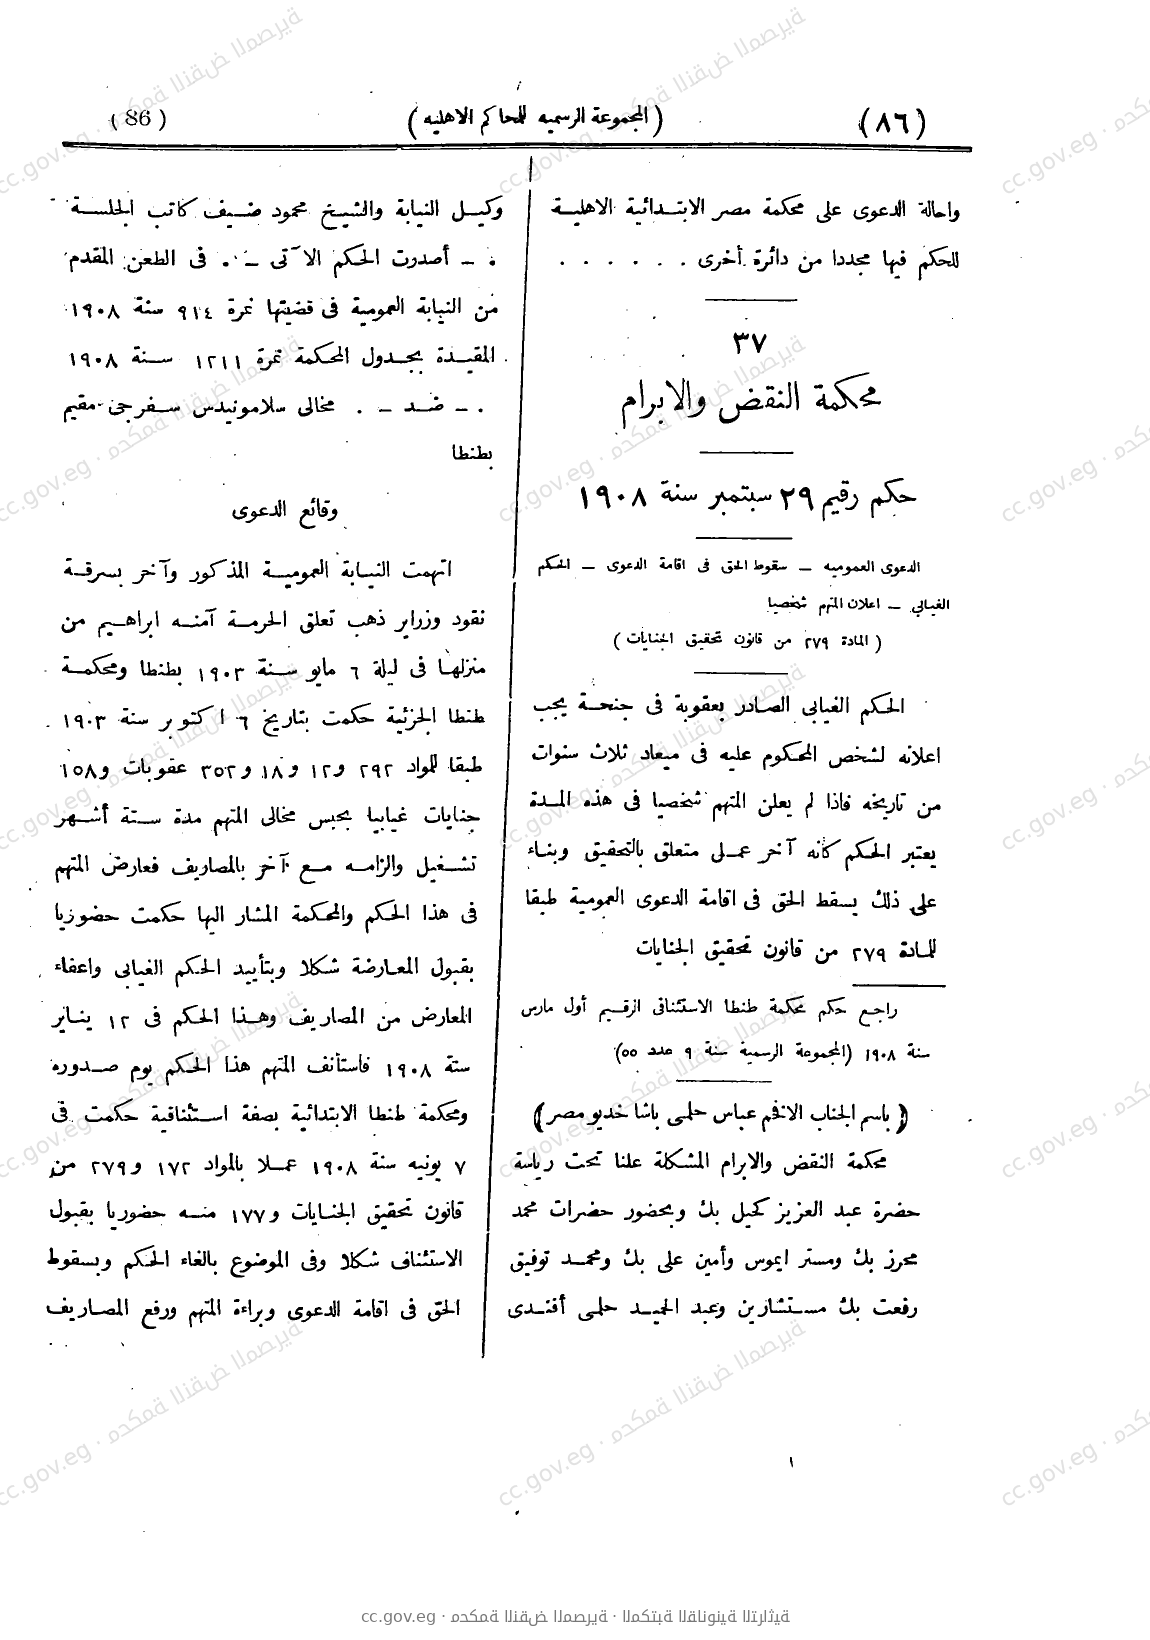 (٨٦)
(المجموعة الرسميه للمحاكم الاهليه)
(86)
واحالة الدعوى على محكمة مصر الابتدائية الاهلية
للحكم فيها مجددا من دائرة أخرى . . . . . .
٣٧
محكمة النقض والابرام
حكم رقيم ٢٩ سبتمبر سنة ١٩٠٨
الدعوى العموميه – سقوط الحق فى اقامة الدعوى – الحكم
الغيابي – اعلان المتهم شخصيا
(المادة ٢٧٩ من قانون تحقيق الجنايات)
الحكم الغيابى الصادر بعقوبة فى جنحة يجب
اعلانه لشخص المحكوم عليه فى ميعاد ثلاث سنوات
من تاريخه فاذا لم يعلن المتهم شخصيا فى هذه المدة
يعتبر الحكم كأنه آخر عملى متعلق بالتحقيق وبناء
على ذلك يسقط الحق فى اقامة الدعوى العمومية طبقا
للمادة ٢٧٩ من قانون تحقيق الجنايات
راجع حكم محكمة طنطا الاستئنافى الرقيم أول مارس
سنة ١٩٠٨ (المجموعة الرسمية سنة ٩ عدد ٥٥)
(باسم الجناب الافخم عباس حلمى باشا خديو مصر)
محكمة النقض والابرام المشكلة علنا تحت رياسة
حضرة عبد العزيز كحيل بك وبحضور حضرات محمد
محرز بك ومستر ايموس وأمين على بك ومحمد توفيق
رفعت بك مستشارين وعبد الحميد حلمى أفندى
وكيل النيابة والشيخ محمود ضيف كاتب الجلسة
. – أصدرت الحكم الآتى – . فى الطعن المقدم
من النيابة العمومية فى قضيتها نمرة ٩١٤ سنة ١٩٠٨
المقيدة بجدول المحكمة نمرة ١٢١١ سنة ١٩٠٨
. – ضد – . مخالى سلامونيدس سفرجى مقيم
بطنطا
وقائع الدعوى
اتهمت النيابة العمومية المذكور وآخر بسرقة
نقود وزراير ذهب تعلق الحرمة آمنه ابراهيم من
منزلها فى ليلة ٦ مايو سنة ١٩٠٣ بطنطا ومحكمة
طنطا الجزئية حكمت بتاريخ ٦ اكتوبر سنة ١٩٠٣
طبقا للمواد ٢٩٢ و١٢ و١٨ و٣٥٢ عقوبات و١٥٨
جنايات غيابيا بحبس مخالى المتهم مدة ستة أشهر
تشغيل والزامه مع آخر بالمصاريف فعارض المتهم
فى هذا الحكم والمحكمة المشار اليها حكمت حضوريا
بقبول المعارضة شكلا وبتأييد الحكم الغيابى واعفاء
المعارض من المصاريف وهذا الحكم فى ١٢ يناير
سنة ١٩٠٨ فاستأنف المتهم هذا الحكم يوم صدوره
ومحكمة طنطا الابتدائية بصفة استئنافية حكمت فى
٧ يونيه سنة ١٩٠٨ عملا بالمواد ١٧٢ و٢٧٩ من
قانون تحقيق الجنايات و١٧٧ منه حضوريا بقبول
الاستئناف شكلا وفى الموضوع بالغاء الحكم وبسقوط
الحق فى اقامة الدعوى وبراءة المتهم ورفع المصاريف
cc.gov.eg · محكمة النقض المصرية · المكتبة القانونية التراثية